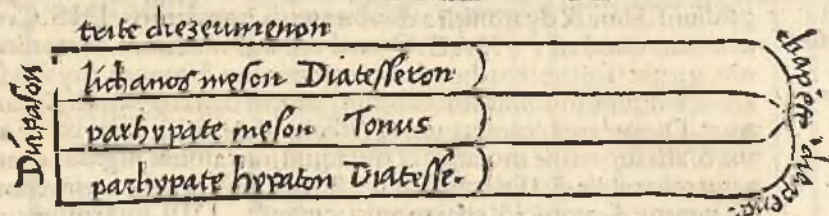 trite diezeumenon
lichanos meson Diatesseron
parhypate meson Tonus
parhypate hypaton Diatesse.
Diapason
diapēte diapente